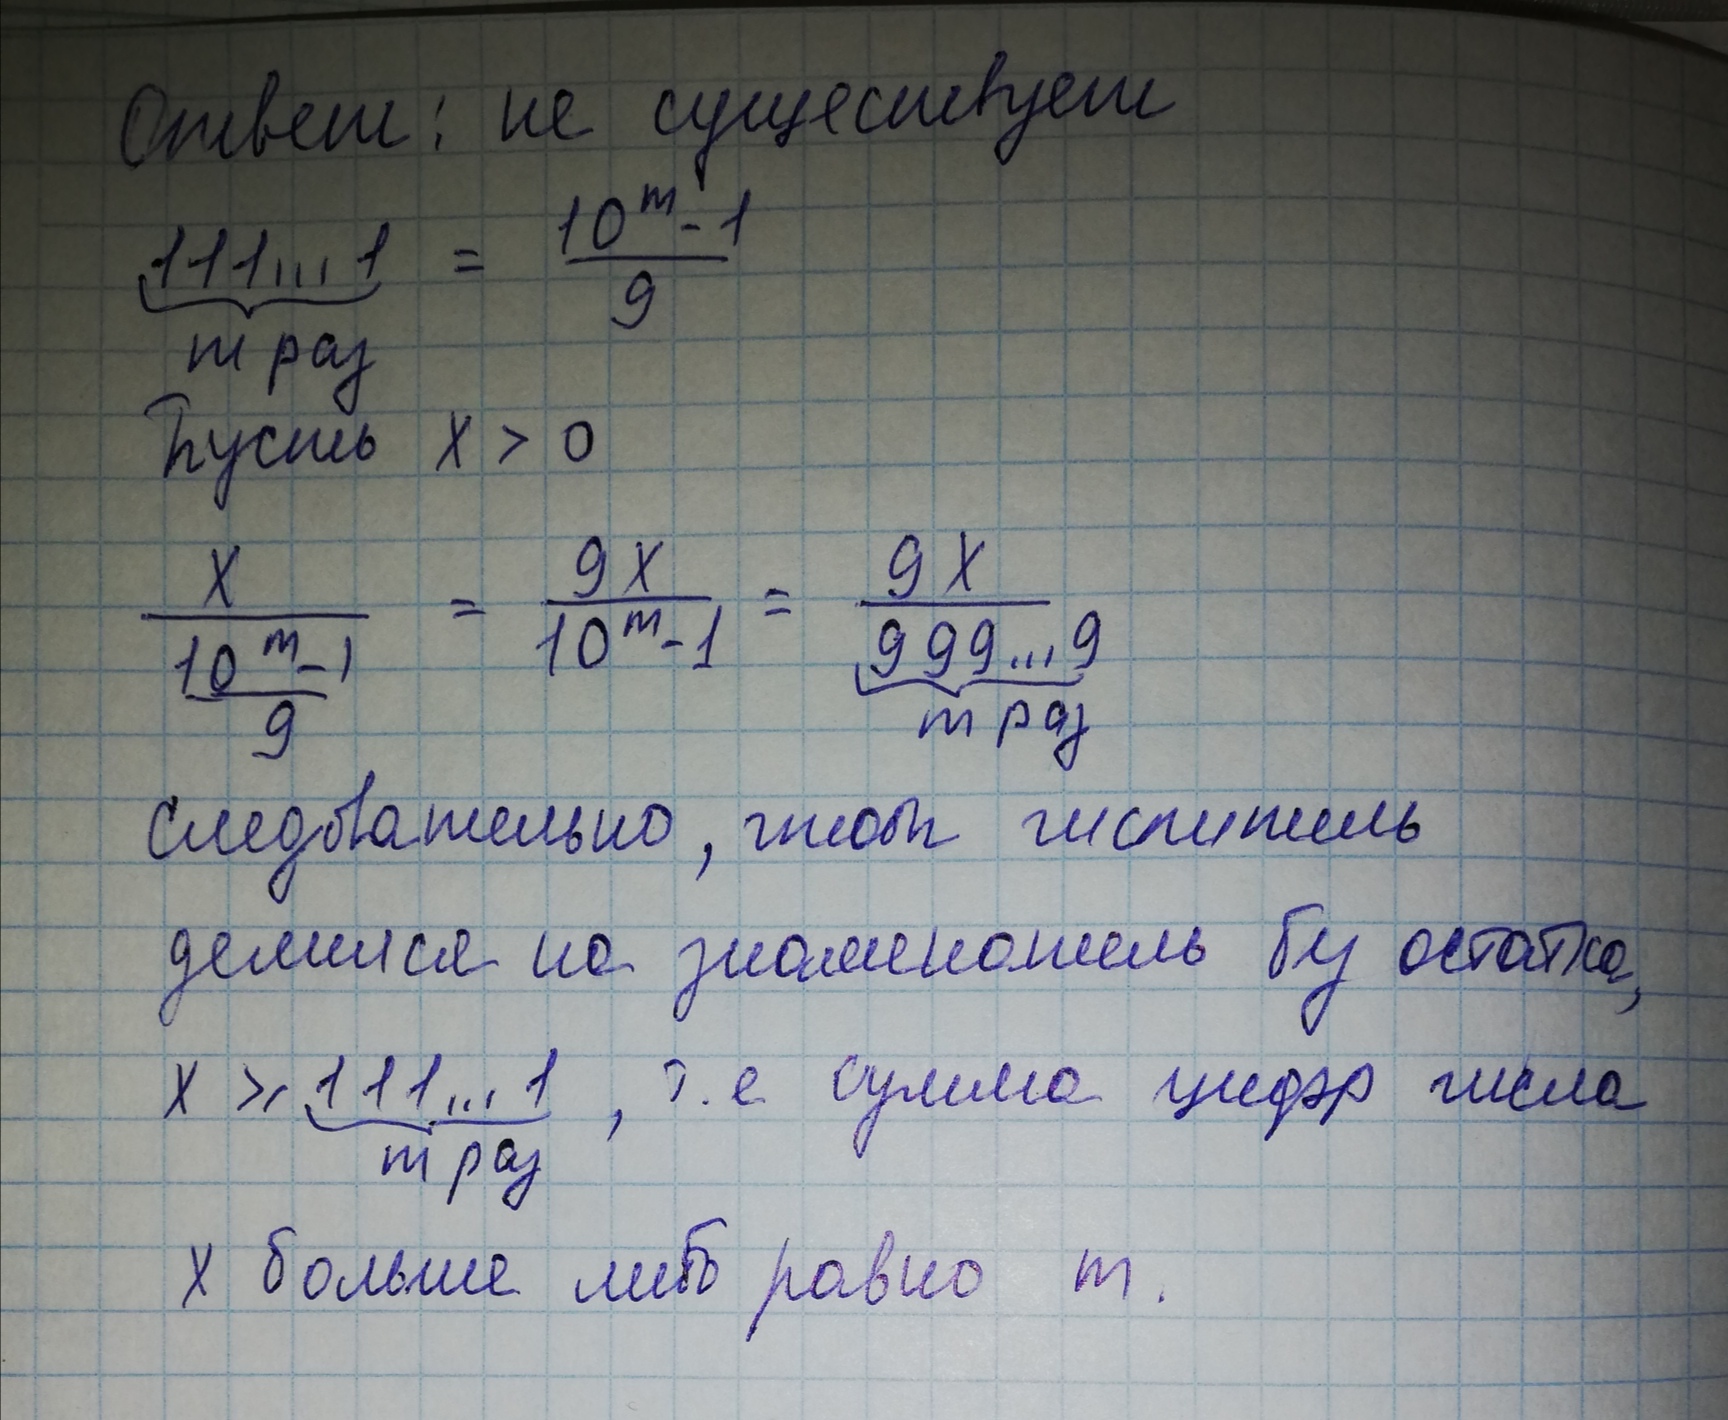 Ответ: не существует
111...1 = (10^m - 1)/9
m раз
Пусть x > 0
x/((10^m - 1)/9) = 9x/(10^m - 1) = 9x/999...9
m раз
Следовательно, чтобы числитель
делился на знаменатель без остатка,
x ⩾ 111...1, т.е сумма цифр числа
m раз
x больше либо равно m.